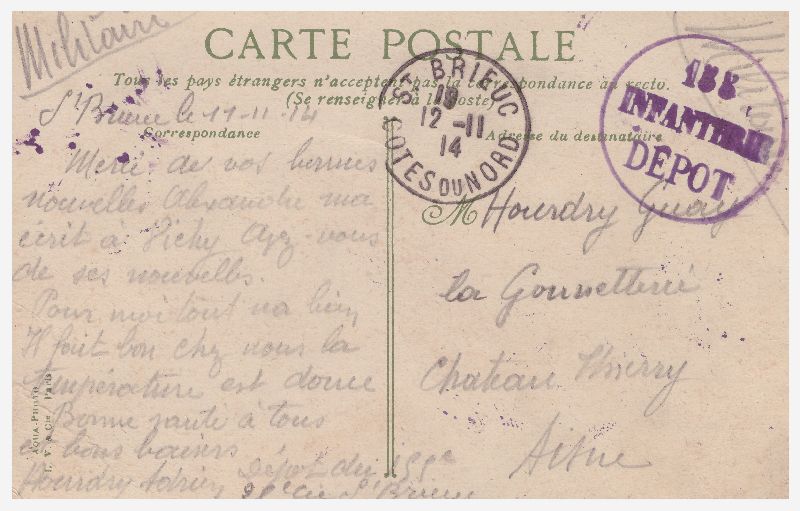 Militaire
CARTE POSTALE
Tous les pays étrangers n'acceptent pas la correspondance au recto.
(Se renseigner à la Poste)
St Brieuc le 11-11-14
Correspondance
Adresse du destinataire
ST BRIEUC
19
12 -11
14
COTES DU NORD
INFANTERIE
DÉPOT
Merci de vos bonnes
nouvelles Alexandre m'a
écrit à Vichy Ayez-vous
de ses nouvelles.
Pour moi tout va bien
Il fait bon chez nous la
température est douce
Bonne santé à tous
et bons baisers
Hourdry Adrien Dépôt du
St Brieuc
M Hourdry
la
Chateau Thierry
Aisne
AQUA-PHOTO
L. V. & Cie Paris